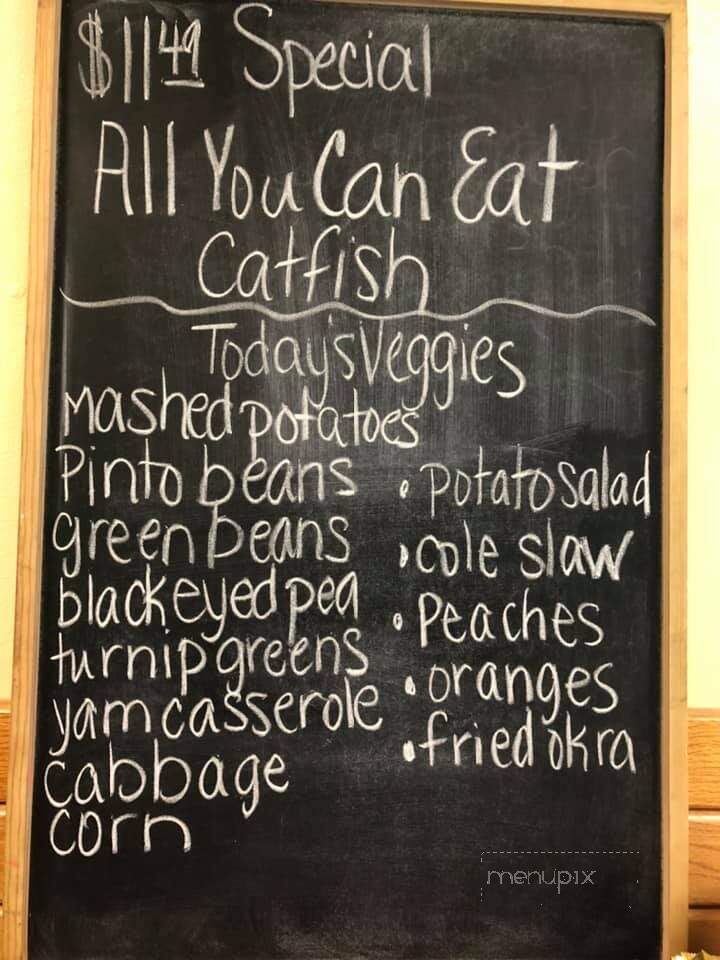 $11.49 Special
All You Can Eat
Catfish
Today's Veggies
Mashed potatoes
Pinto beans
green beans
blackeyed pea
turnip greens
yam casserole
cabbage
corn
• potato salad
• cole slaw
• Peaches
• oranges
• fried okra
menupix